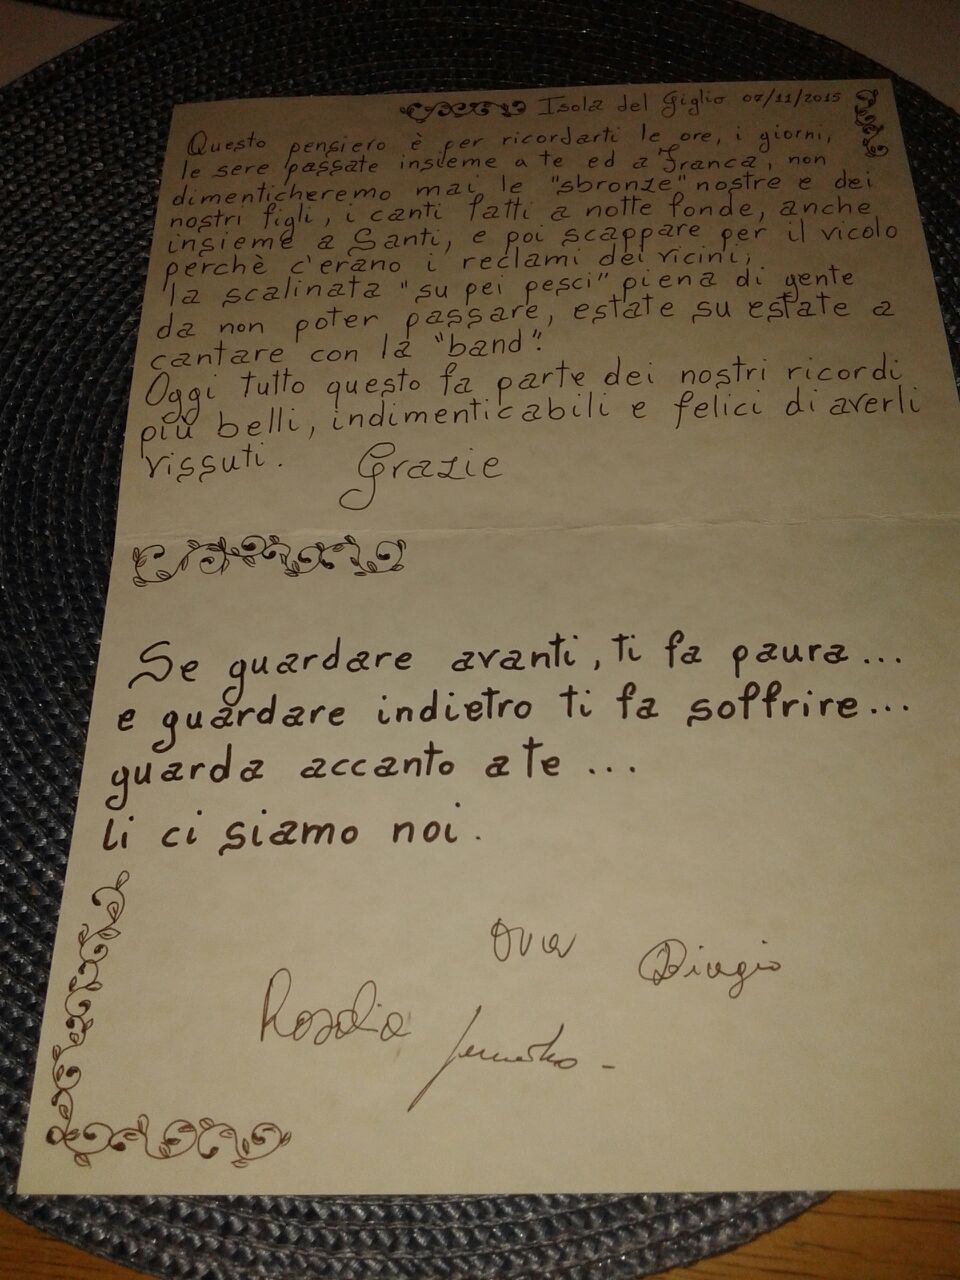 Isola del Giglio 07/11/2015
Questo pensiero è per ricordarti le ore, i giorni,
le sere passate insieme a te ed a Franca, non
dimenticheremo mai le "sbronze" nostre e dei
nostri figli, i canti fatti a notte fonde, anche
insieme a Santi, e poi scappare per il vicolo
perchè c'erano i reclami dei vicini,
la scalinata "su pei pesci" piena di gente
da non poter passare, estate su estate a
cantare con la "band".
Oggi tutto questo fa parte dei nostri ricordi
più belli, indimenticabili e felici di averli
vissuti. Grazie
Se guardare avanti, ti fa paura...
e guardare indietro ti fa soffrire...
guarda accanto a te ...
li ci siamo noi.
Biagio
Rosalia